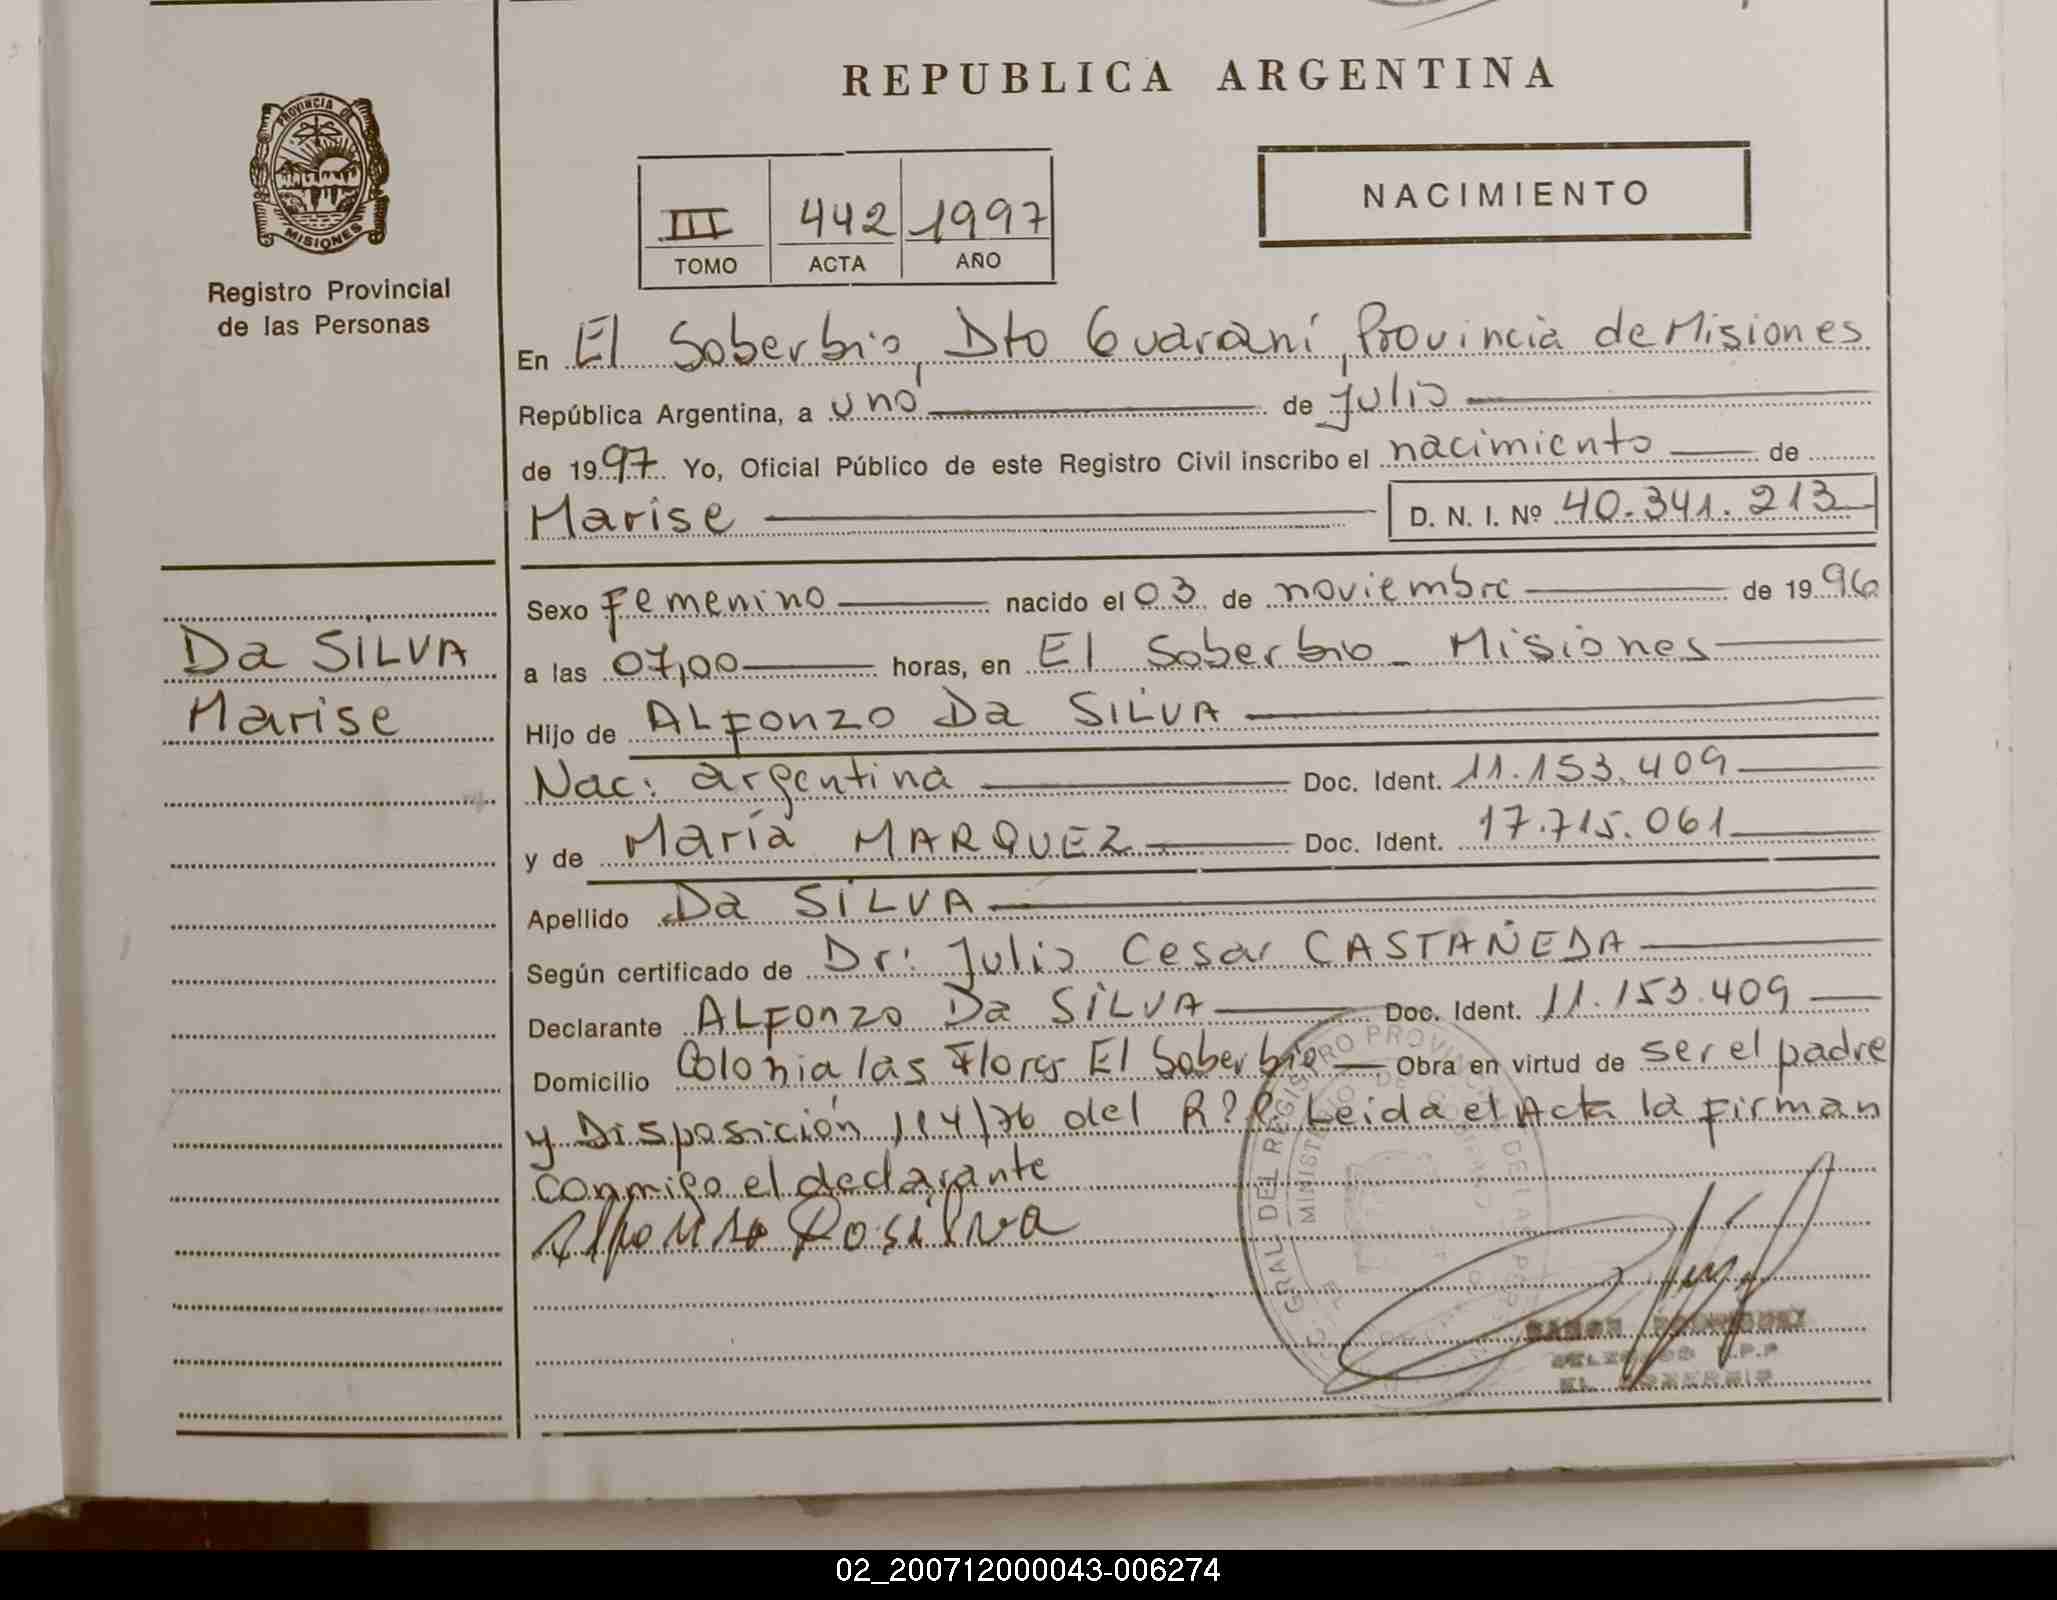 REPUBLICA ARGENTINA
PROVINCIA DE
MISIONES
Registro Provincial
de las Personas
NACIMIENTO
III 442 1997
TOMO ACTA AÑO
En El Soberbio, Dto Guaraní, Provincia de Misiones
República Argentina, a uno de Julio
de 1997 Yo, Oficial Público de este Registro Civil inscribo el nacimiento de
Marise D. N. I. Nº 40.341.213
Sexo Femenino nacido el 03 de noviembre de 1996
a las 07,00 horas, en El Soberbio - Misiones
Hijo de ALFonzo Da SILVA
Nac: argentina Doc. Ident. 11.153.409
y de María MARQUEZ Doc. Ident. 17.715.061
Apellido Da SILVA
Según certificado de Dr: Julio Cesar CASTAÑEDA
Declarante ALFonzo Da SILVA Doc. Ident. 11.153.409
Domicilio Colonia las Flores El Soberbio Obra en virtud de ser el padre
y Disposición 114/76 del R.P.P. Leida el Acta la firman
conmigo el declarante
Da SILVA
Marise
EL SOBERBIO
02_200712000043-006274